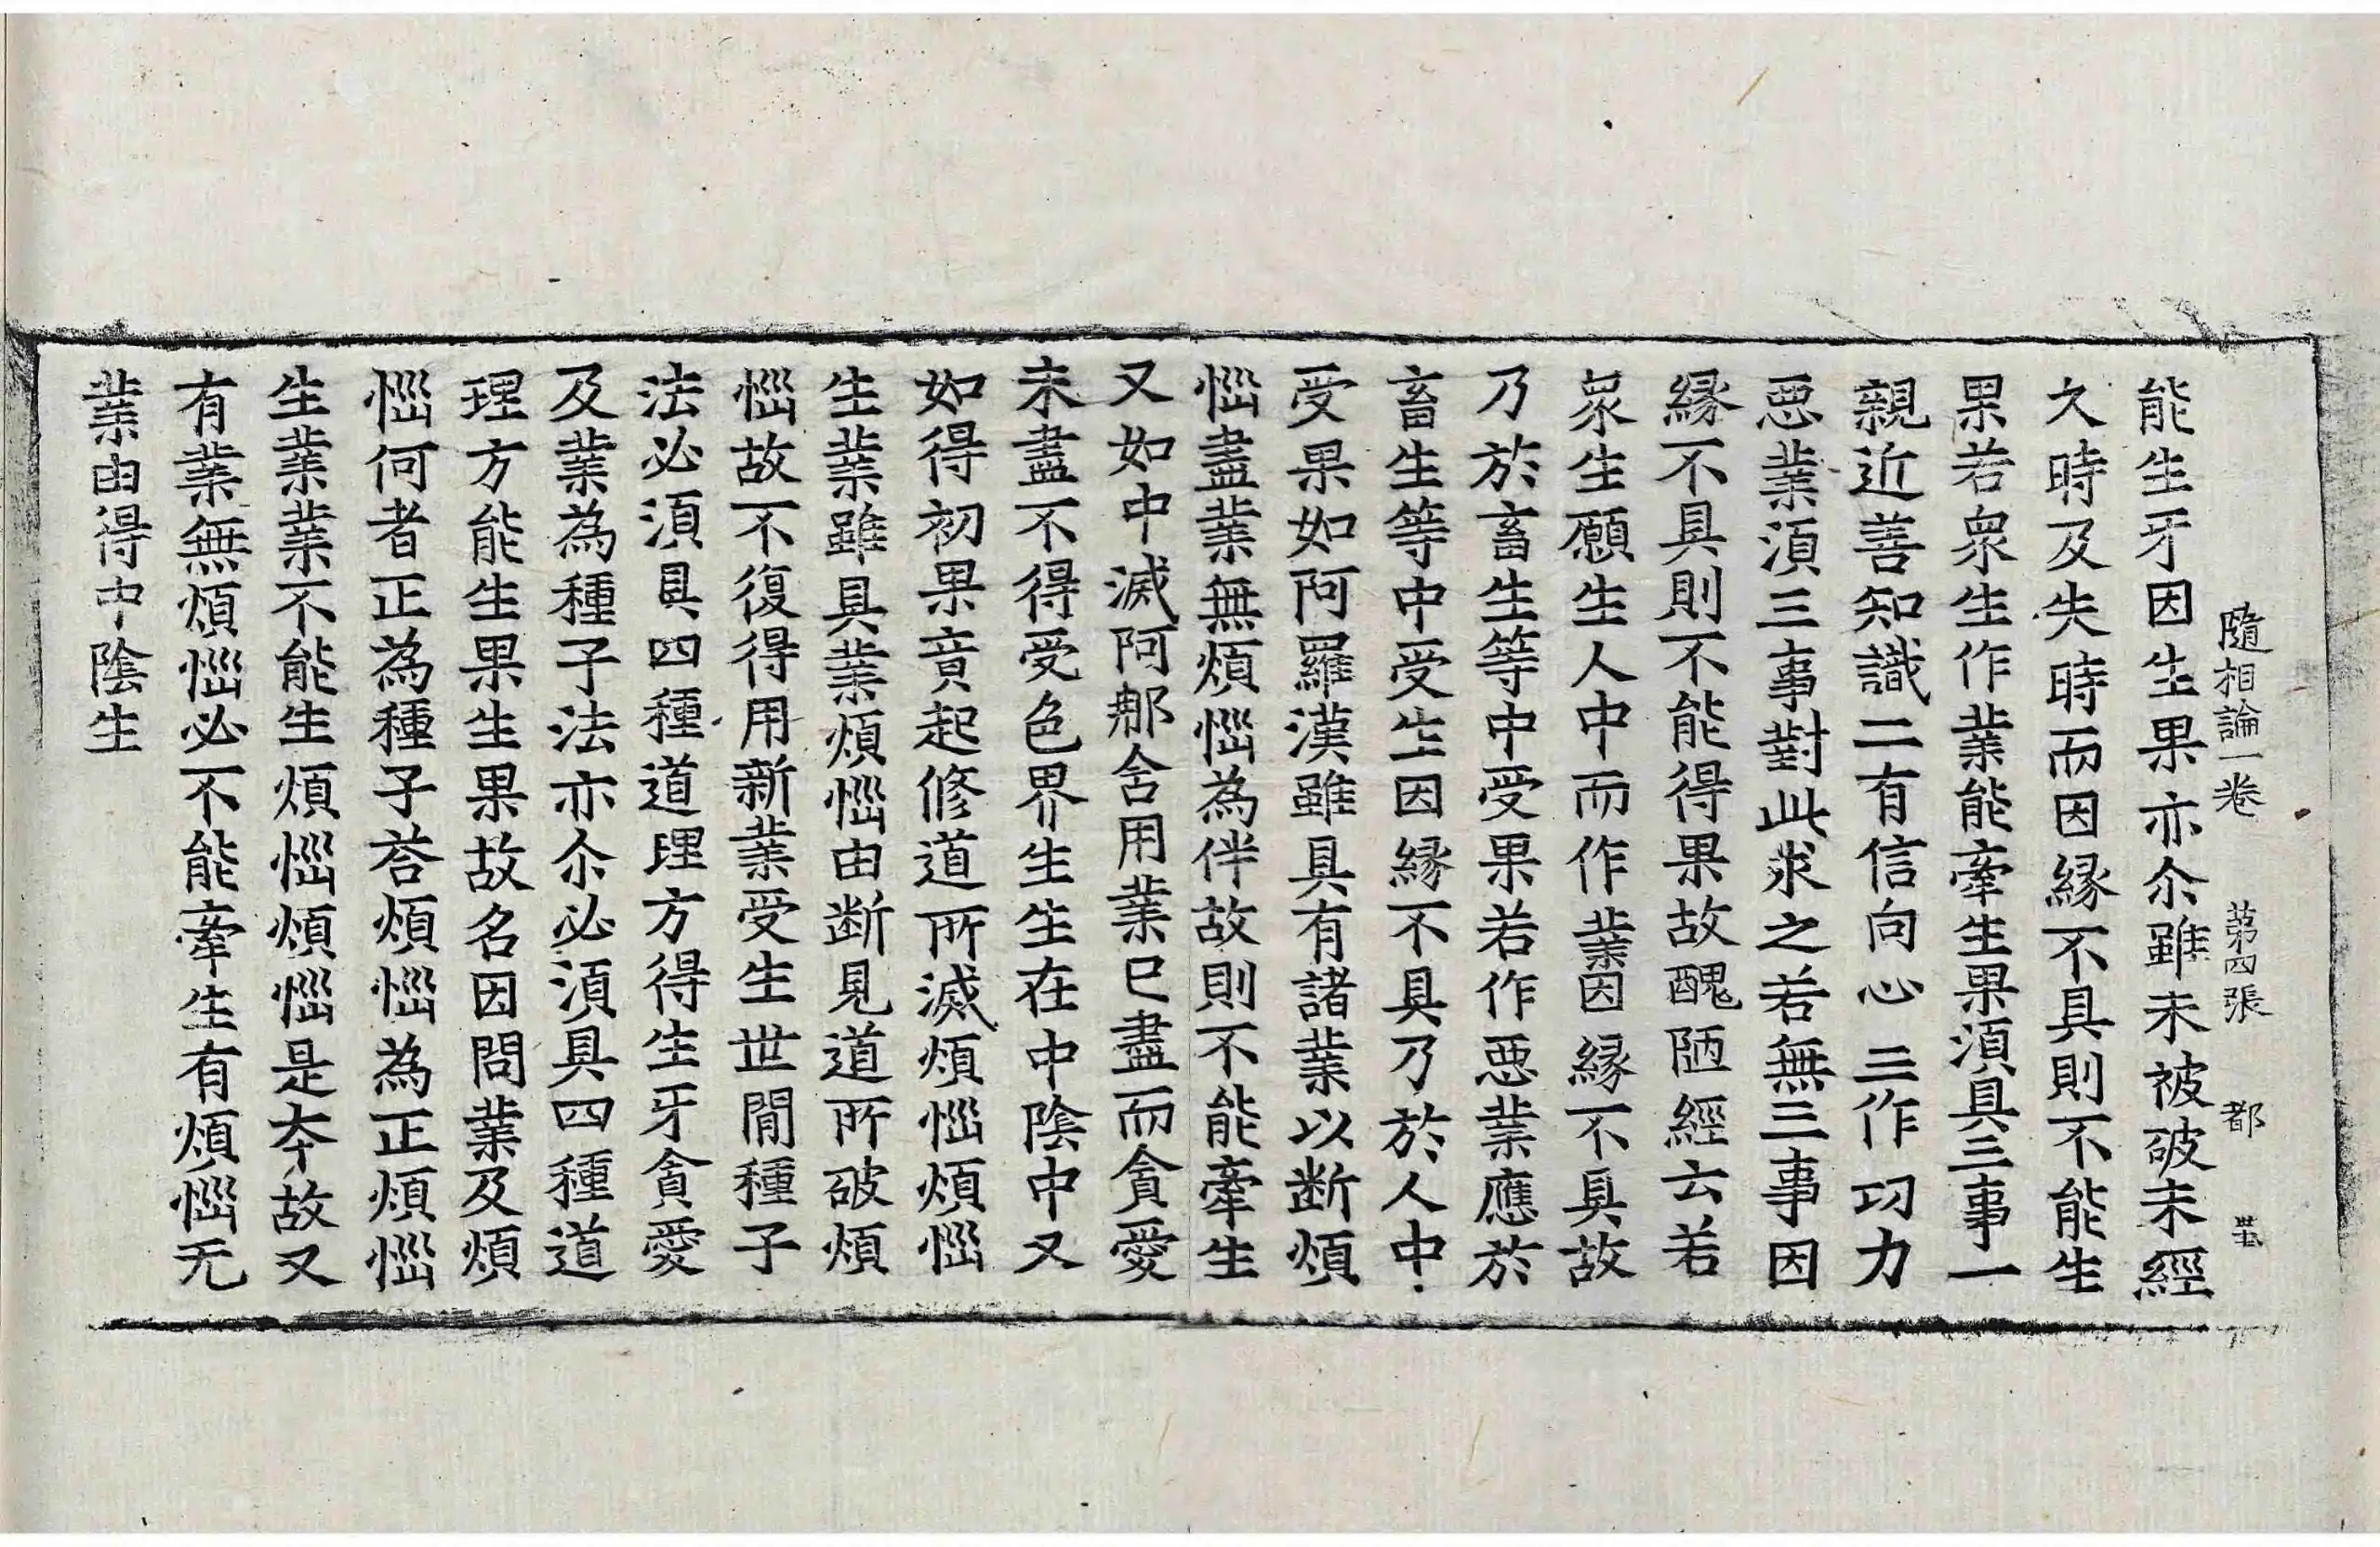 隨相論一卷 第四張 都
能生牙因生果亦尒雖未被破未經
久時及失時而因緣不具則不能生
果若衆生作業能牽生果須具三事一
親近善知識二有信向心三作功力
惡業須三事對此求之若無三事因
緣不具則不能得果故醜陋經云若
衆生願生人中而作業因緣不具故
乃於畜生等中受果若作惡業應於
畜生等中受生因緣不具乃於人中
受果如阿羅漢雖具有諸業以斷煩
惱盡業無煩惱為伴故則不能牽生
又如中滅阿那舍用業已盡而貪愛
未盡不得受色界生生在中陰中又
如得初果竟起修道所滅煩惱煩惱
生業雖具業煩惱由斷見道所破煩
惱故不復得用新業受生世間種子
法必須具四種道理方得生牙貪愛
及業為種子法亦尒必須具四種道
理方能生果生果故名因問業及煩
惱何者正為種子荅煩惱為正煩惱
生業業不能生煩惱煩惱是夲故又
有業無煩惱必不能牽生有煩惱无
業由得中陰生